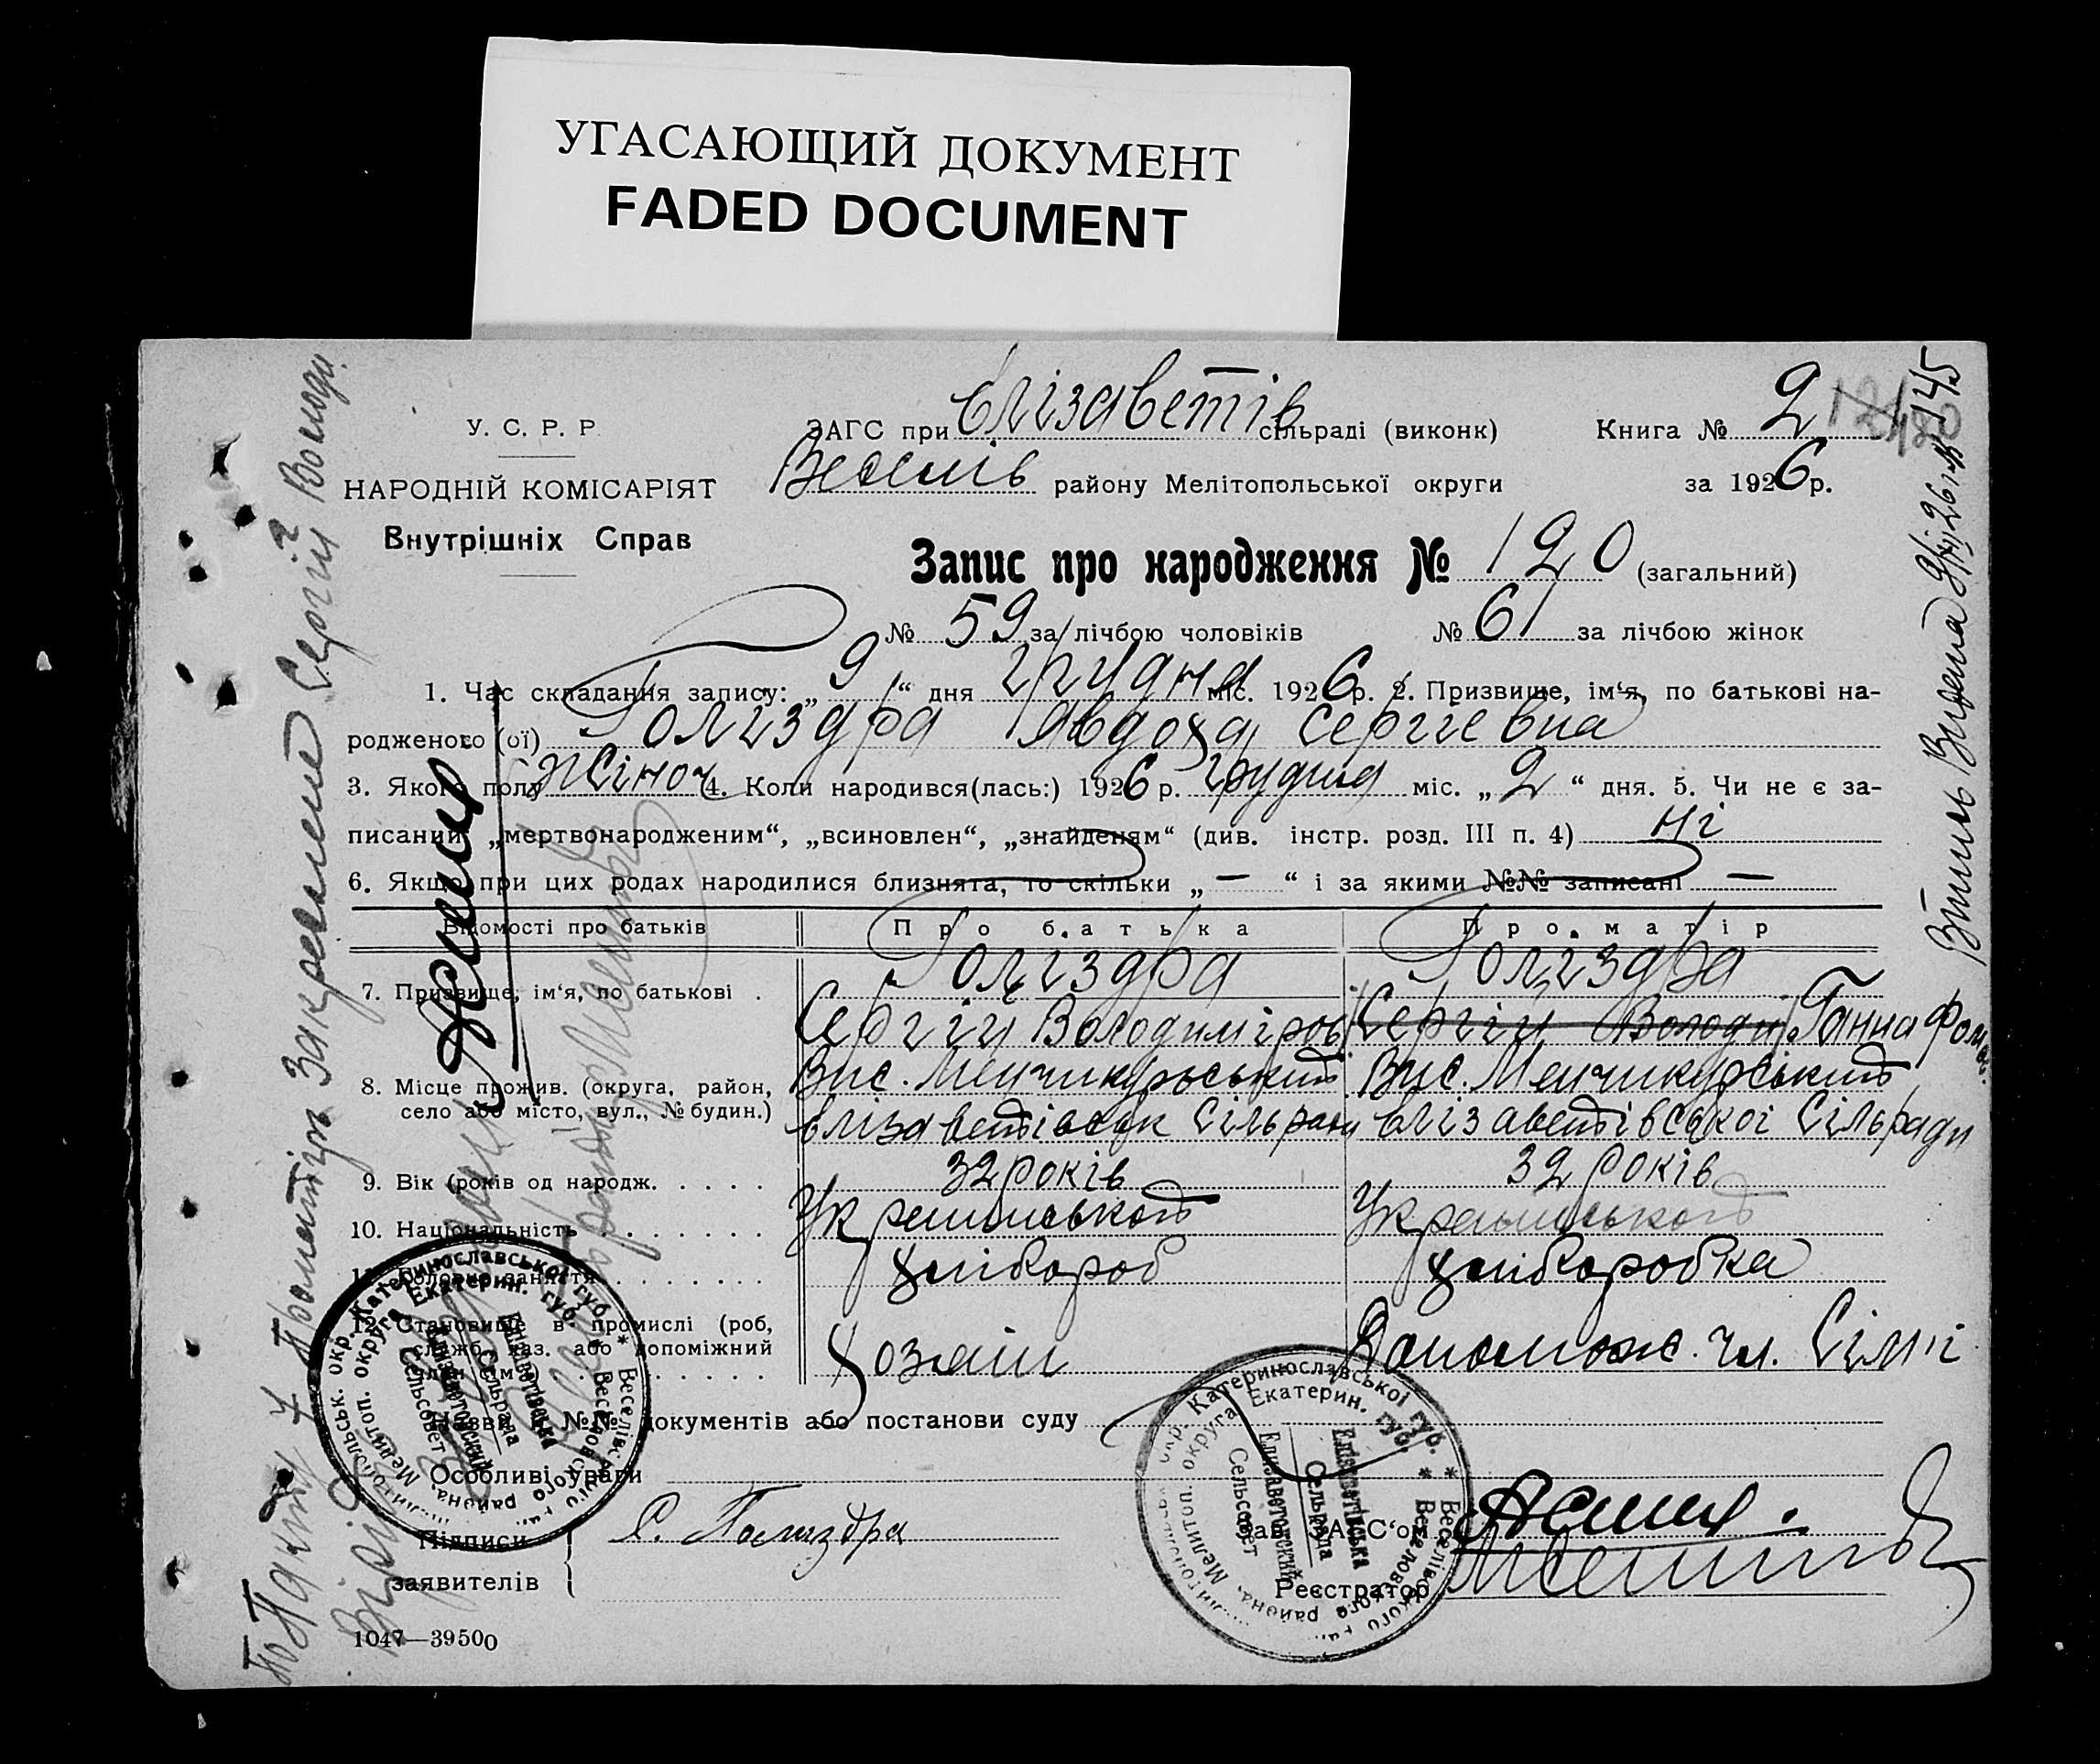 УГАСАЮЩИЙ ДОКУМЕНТ
FADED DOCUMENT
У. С. Р. Р.
НАРОДНІЙ КОМІСАРІЯТ
Внутрішніх Справ
ЗАГС при Єлізаветів сільраді (виконк)
Веселів району Мелітопольської округи
Книга № 2
за 1926 р.
145
Запис про народження № 120 (загальний)
№ 59 за лічбою чоловіків № 61 за лічбою жінок
1. Час складання запису: „ 9 “ дня грудня міс. 1926 р. 2. Призвище, ім‘я, по батькові на-
родженого (ої) Голіздра Явдоха Сергієвна
3. Якого полу жіноч 4. Коли народився(лась:) 1926 р. грудня міс. „ 2 “ дня. 5. Чи не є за-
писаний „мертвонародженим“, „всиновлен“, „знайденям“ (див. інстр. розд. III п. 4) ні
6. Якщо при цих родах народилися близнята, то скільки „ — “ і за якими №№ записані —
Відомості про батьків Про батька Про матір
7. Призвище, ім‘я, по батькові . Голіздра Голіздра
Сергій Володиміров Сергій Володи Ганна Фом.
8. Місце прожив. (округа, район,
село або місто, вул., № будин.)
Вис. Менчикурський Вис. Менчикурський
Єлізаветівськ Сільради Єлізаветівської Сільради
9. Вік (років од народж. . . . . 32 років 32 років
10. Національність . . . . . . . Українського Українського
11. Головне заняття . . . . . . . хлібороб хліборобка
12. Становище в промислі (роб,
служб, хаз. або допоміжний
член сім
хозяїн Допомож. чл. Сімї
Назви №№ документів або постанови суду
Особливі уваги
Підписи
заявителів
С. Голиздра
Зав. ЗАГС‘ом
Реєстратор
1047—39500
Катеринославської губ. * Веселівського
Екатерин. губ. * Веселовского района, Мелитоп. округа
Елізаветівська
Сельрада
Елизаветовский
Сельсовет
Катеринославської губ. * Веселівського
Екатерин. губ. * Веселовского района, Мелитоп. округа
Елізаветівська
Сельрада
Елизаветовский
Сельсовет